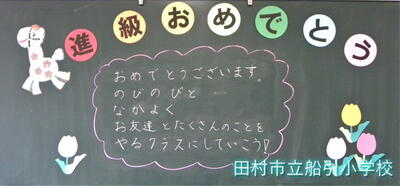 進級おめでとう
おめでとうございます。
のびのびと
なかよく
お友達とたくさんのことを
やるクラスにしていこう!
田村市立船引小学校